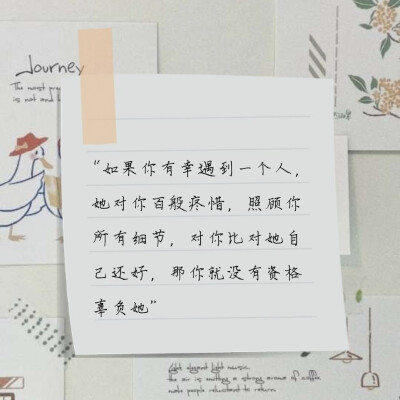 Journey
The most pre
is not and l
“如果你有幸遇到一个人，
她对你百般疼惜，照顾你
所有细节，对你比对她自
己还好，那你就没有资格
辜负她”
light elegant light music.
the air is emitting a strong aroma of coffee.
make people reluctant to return